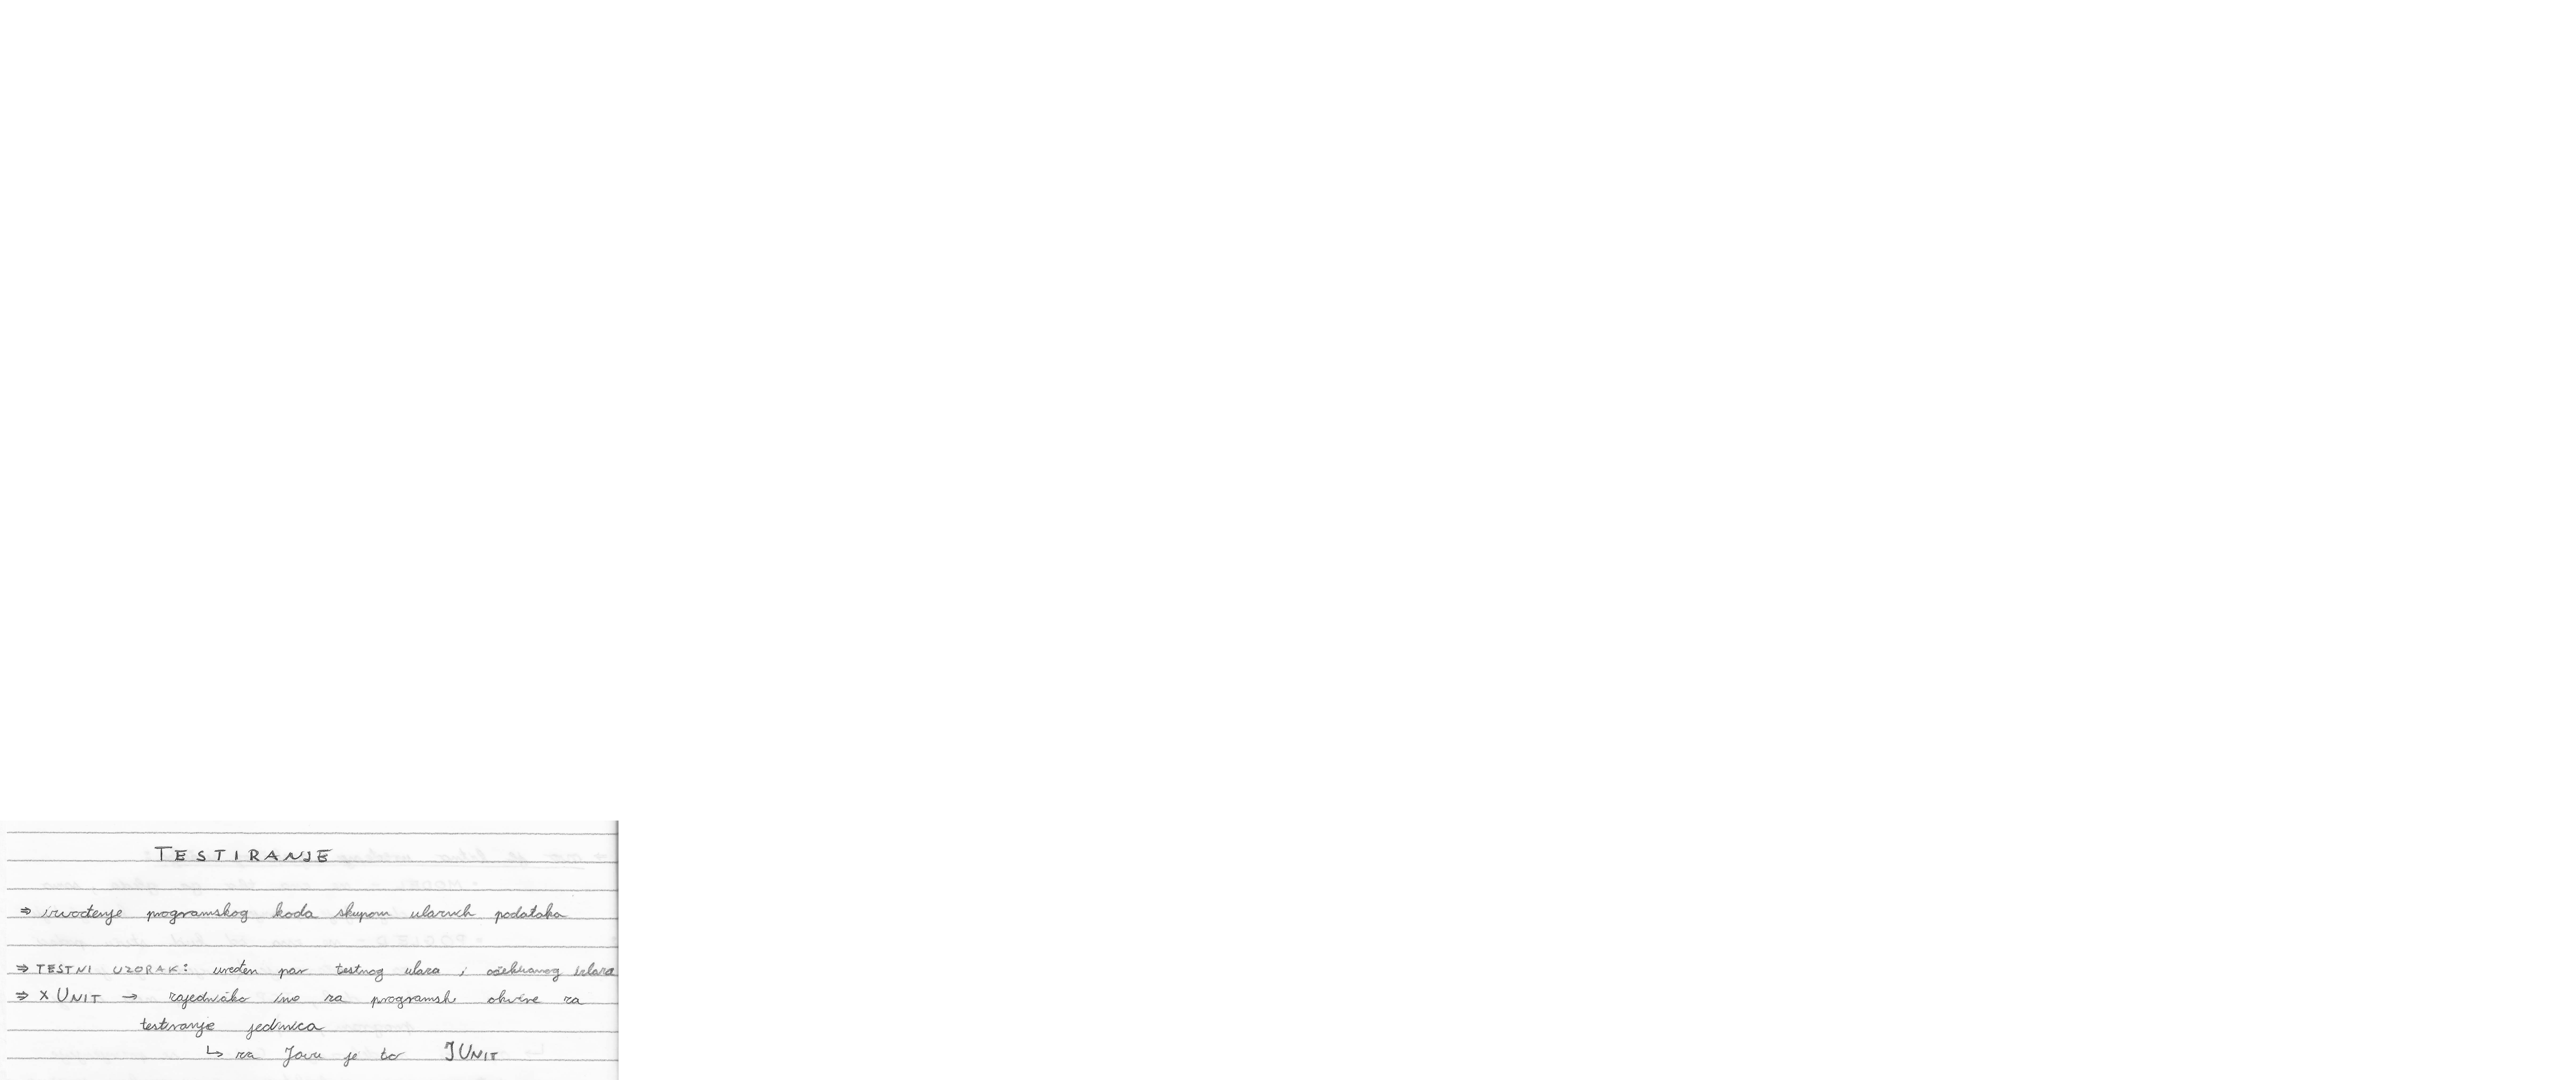 TESTIRANJE
⇒ izvođenje programskog koda skupom ulaznih podataka
⇒ TESTNI UZORAK: uređen par testnog ulaza i očekivanog izlaza
⇒ xUNIT → zajedničko ime za programske okvire za
testiranje jedinica
↳ za Javu je to JUNIT